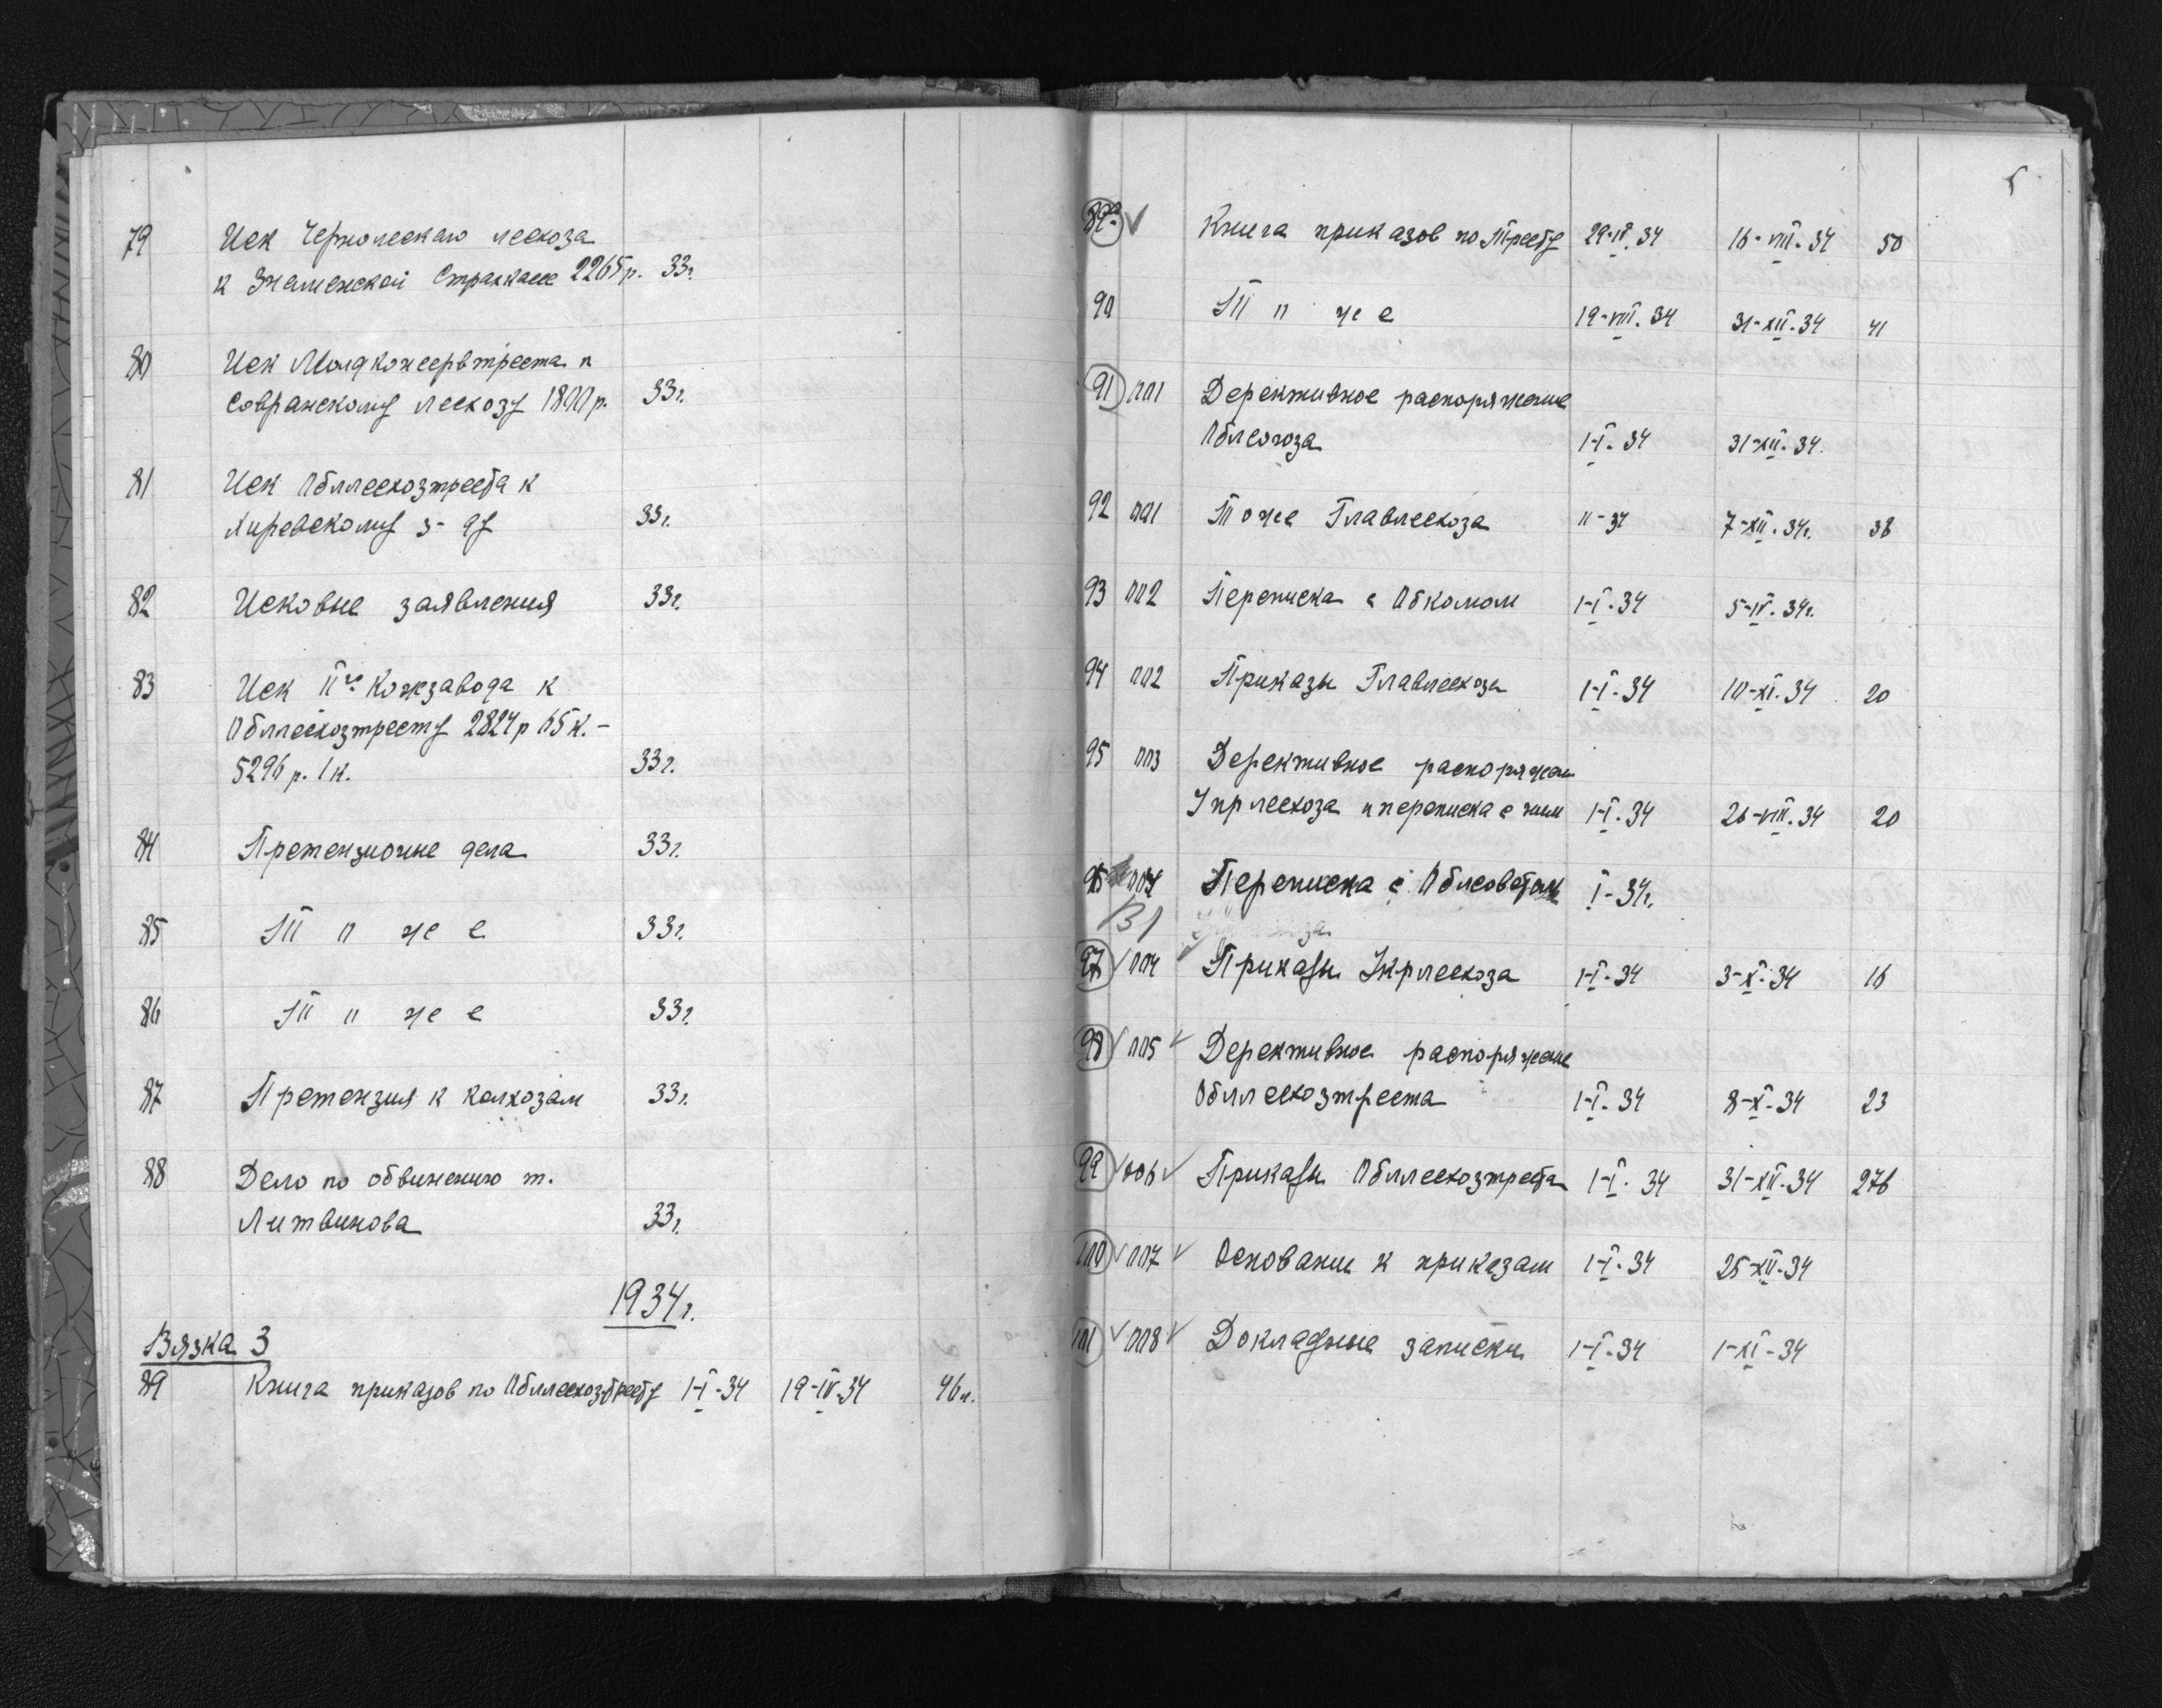 79 Иск Чернолеского лесхоза
к Знаменской Страхкассе 2265 р. 33г.
80 Иск Молдконсервтреста к
Совранскому лесхозу 1800 р. 33г.
81 Иск Обллесхозтреста к
Кировскому з-ду 33г.
82 Исковые заявления 33г.
83 Иск IIго Кожзавода к
Обллесхозтресту 2824 р 65 к. –
5296 р. 1 к. 33г.
84 Претензионные дела 33г.
85 То же 33г.
86 То же 33г.
87 Претензия к колхозам 33г.
88 Дело по обвинению т.
Литвинова 33г.
1934г.
Вязка 3
89 Книга приказов по Обллесхозтресту 1-I-34 19-IV-34 46 л.
5
89а Книга приказов по Тресту 29-IV.34 16-VIII.34 50
90 То же 19-VIII.34 31-XII.34 41
91 001 Дерективное распоряжение
Облесхоза 1-I.34 31-XII.34.
92 001 Тоже Главлесхоза II-34 7-XII.34г. 38
93 002 Переписка с Обкомом 1-I.34 5-IV.34г.
94 002 Приказы Главлесхоза 1-I.34 10-XI.34 20
95 003 Дерективное распоряжен
Укрлесхоза и переписка с ним 1-I.34 26-VIII.34 20
96 004 Переписка с Облсоветом I-34г.
В1
97 004 Приказы Укрлесхоза 1-I.34 3-X.34 16
98 005 Дерективное распоряжение
Обллесхозтреста 1-I.34 8-X-34 23
99 006 Приказы Обллесхозтреста 1-I.34 31-XII.34 276
100 007 Основание к приказам 1-I.34 25-XII-34
101 008 Докладные записки 1-I.34 1-XI-34